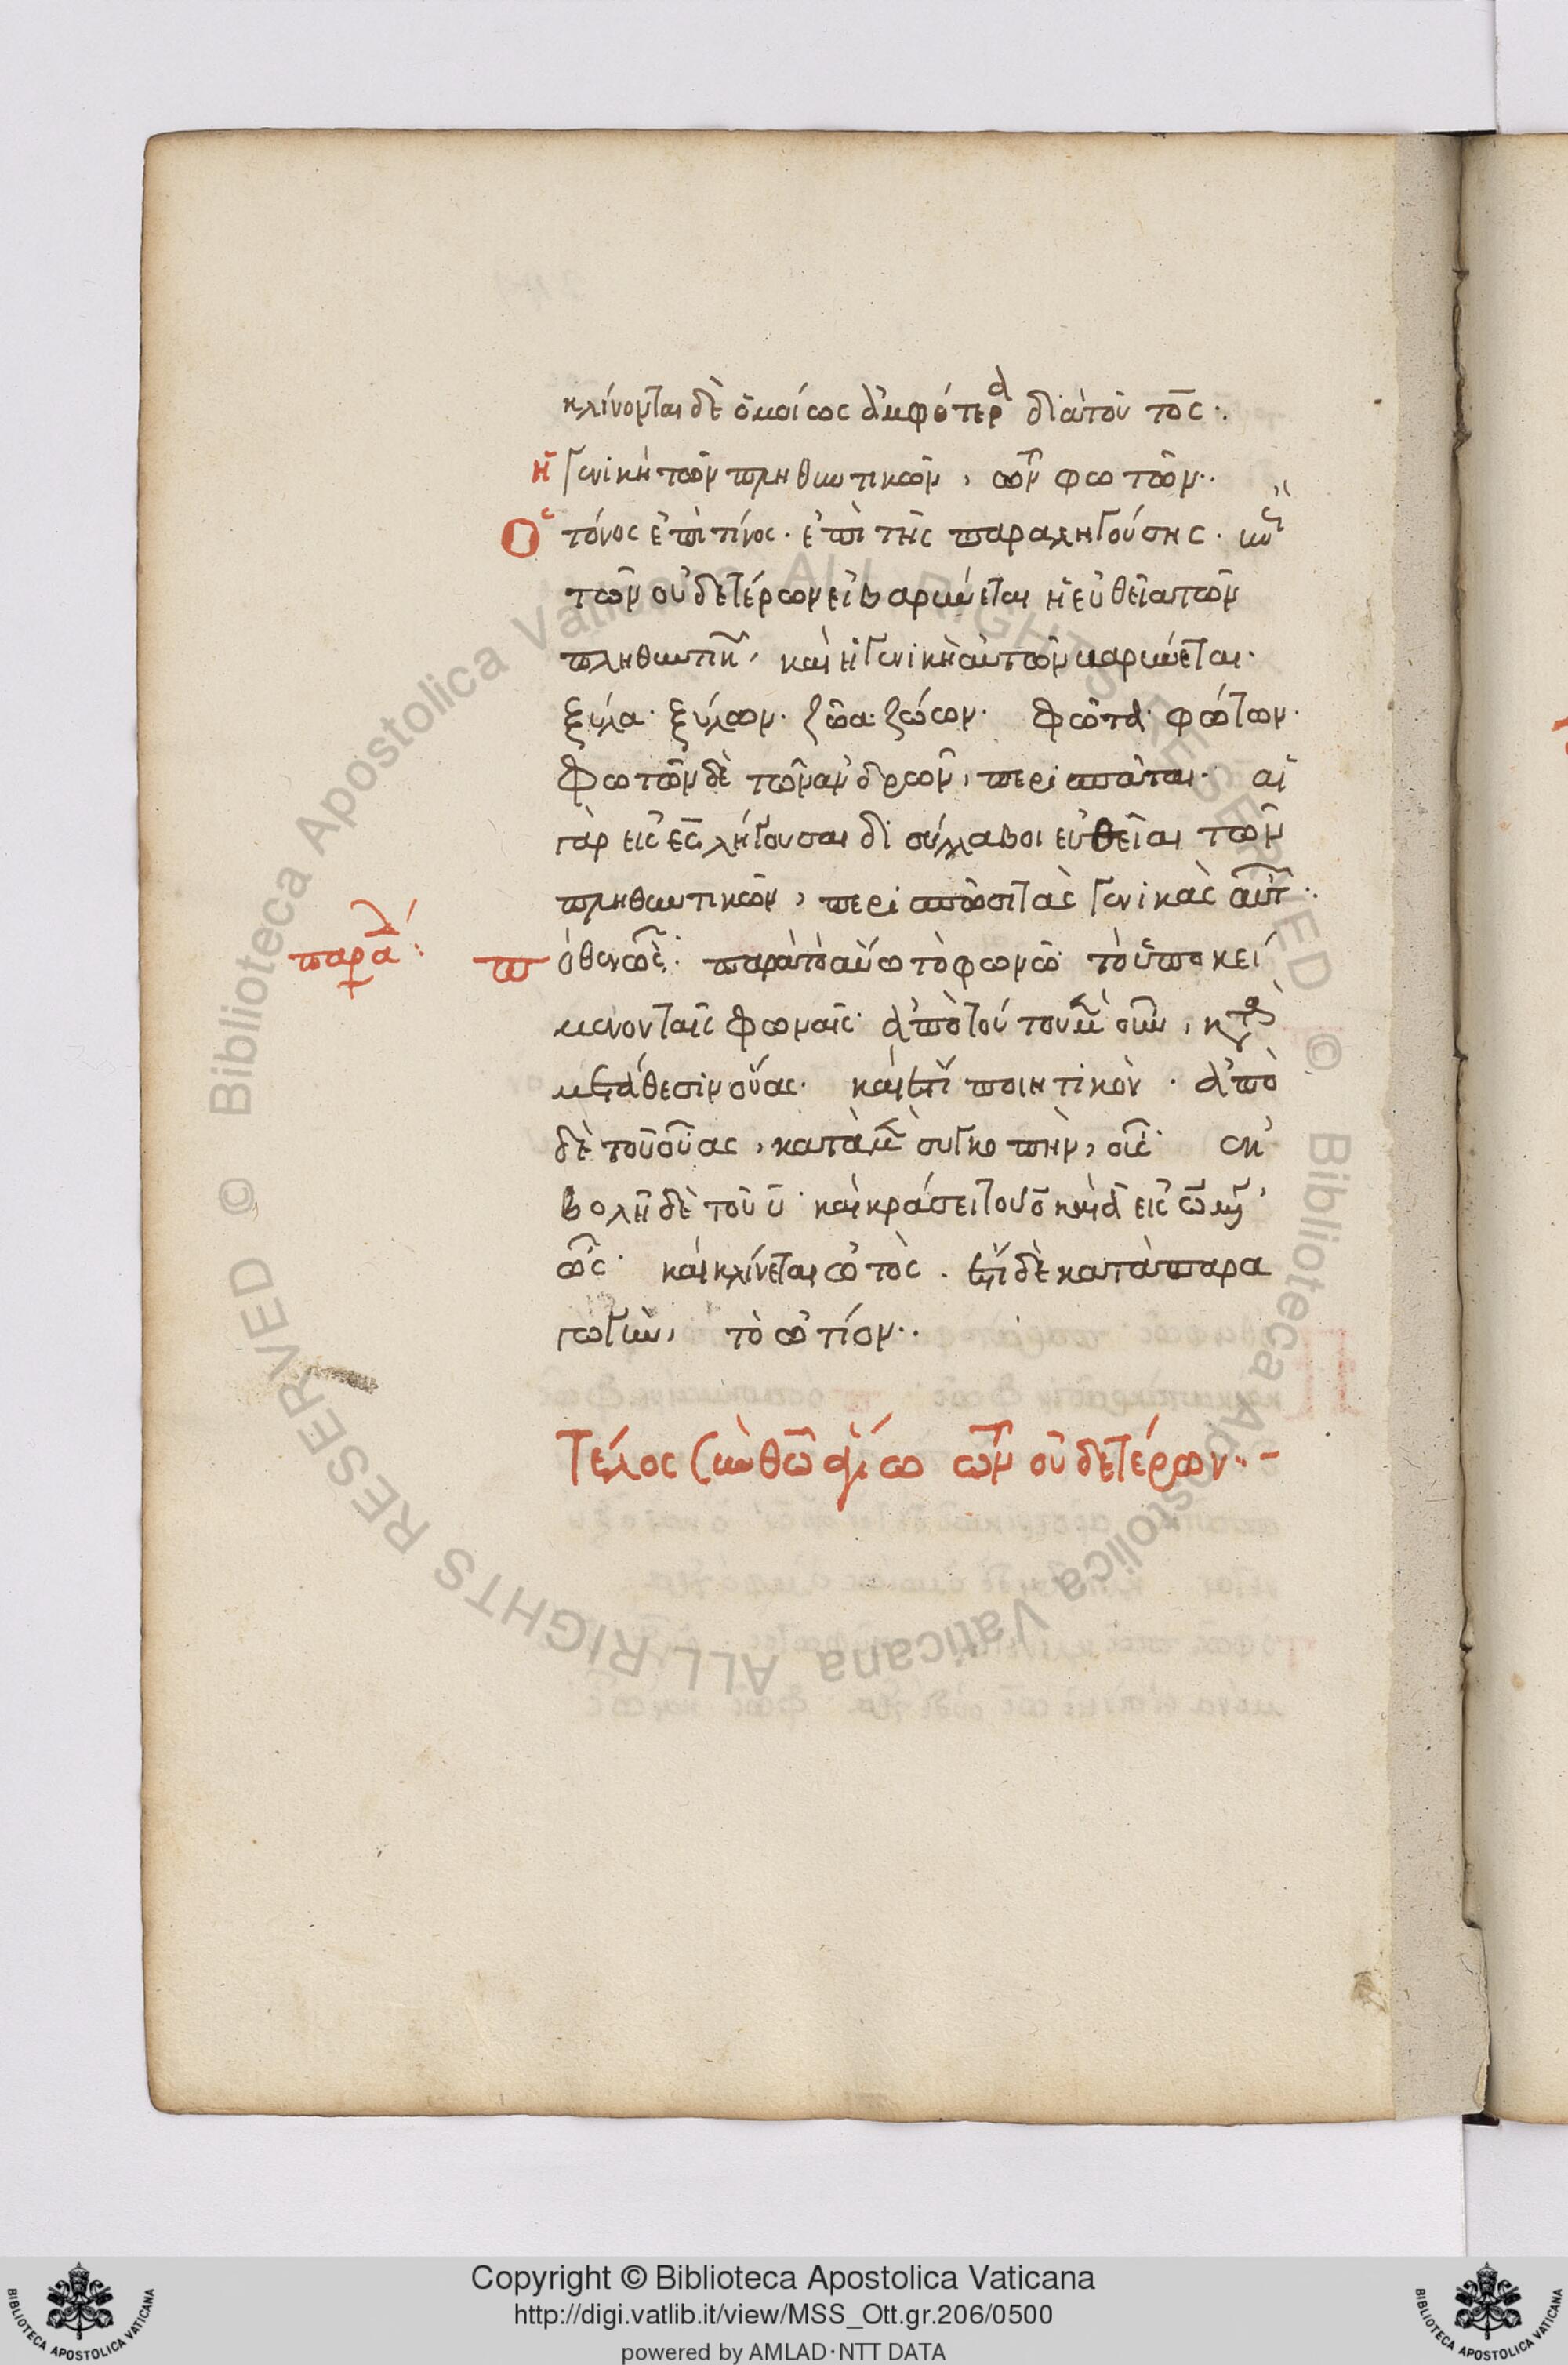 κλίνονται δὲ ὁμοίως ἀμφότερα διὰ τοῦ τος·
ἡ γενικὴ τῶν πληθυντικῶν, τῶν φωτῶν·
Ὁ τόνος ἐπὶ τίνος· ἐπὶ τῆς παραληγούσης·
τῶν οὐδετέρων εἰ βαρύνεται ἡ εὐθεῖα τῶν
πληθυντικῶν, καὶ ἡ γενικὴ αὐτῶν βαρύνεται·
ξύλα· ξύλων· ζῶα· ζώων· φῶτα· φώτων·
φωτῶν δὲ τῶν ἀνδρῶν, περισπᾶται· αἱ
γὰρ εἰς ες λήγουσαι δισύλλαβοι εὐθεῖαι τῶν
πληθυντικῶν, περισπῶσι τὰς γενικὰς αὐτῶν·
παρα
πόθεν ὦς· παρὰ τὸ αὔω τὸ φωνῶ· τὸ ὑποκεί
μενον ταῖς φωναῖς· ἀπὸ τούτου
μετάθεσιν οὔας· καὶ ἔστι ποιητικὸν· ἀπὸ
δὲ τοῦ οὔας, κατὰ μὲν συγκοπὴν, οὖς· ἐκ
βολῆ δὲ τοῦ υ· καὶ κράσει τοῦ ο καὶ α εἰς ω μέγα,
ὦς· καὶ κλίνεται ὠτὸς· ἔστι δὲ κατὰ παρα
γωγὴν, τὸ ὠτίον·
Τέλος σὺν θεῷ ἁγίω τῶν οὐδετέρων
Copyright © Biblioteca Apostolica Vaticana
http://digi.vatlib.it/view/MSS_Ott.gr.206/0500
powered by AMLAD·NTT DATA
BIBLIOTECA APOSTOLICA VATICANA
BIBLIOTECA APOSTOLICA VATICANA
© Biblioteca Apostolica Vaticana ALL RIGHTS RESERVED
© Biblioteca Apostolica Vaticana ALL RIGHTS RESERVED